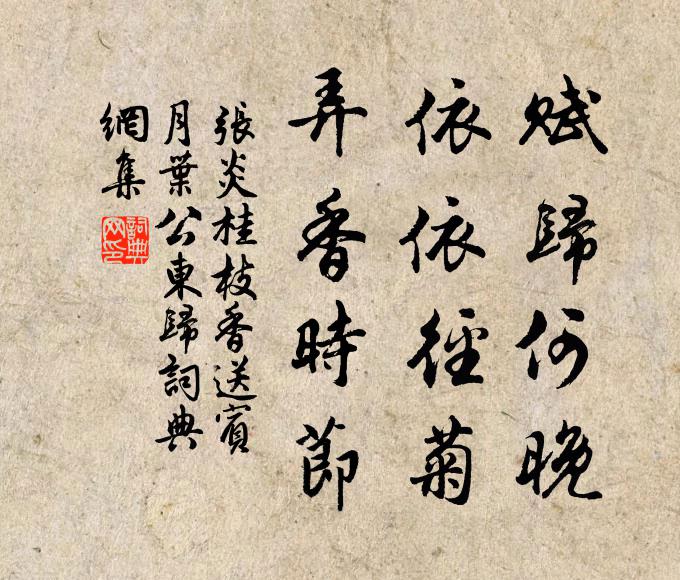 賦歸何晚
依依徑菊
弄香時節
張炎桂枝香送賓
月葉公東歸詞典
網集
詞典
网印